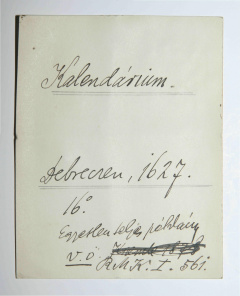 Kalendárium.
Debreczen, 1627.
16°
Egyetlen teljes példány
V. ö.
R.M.K. I. 561.